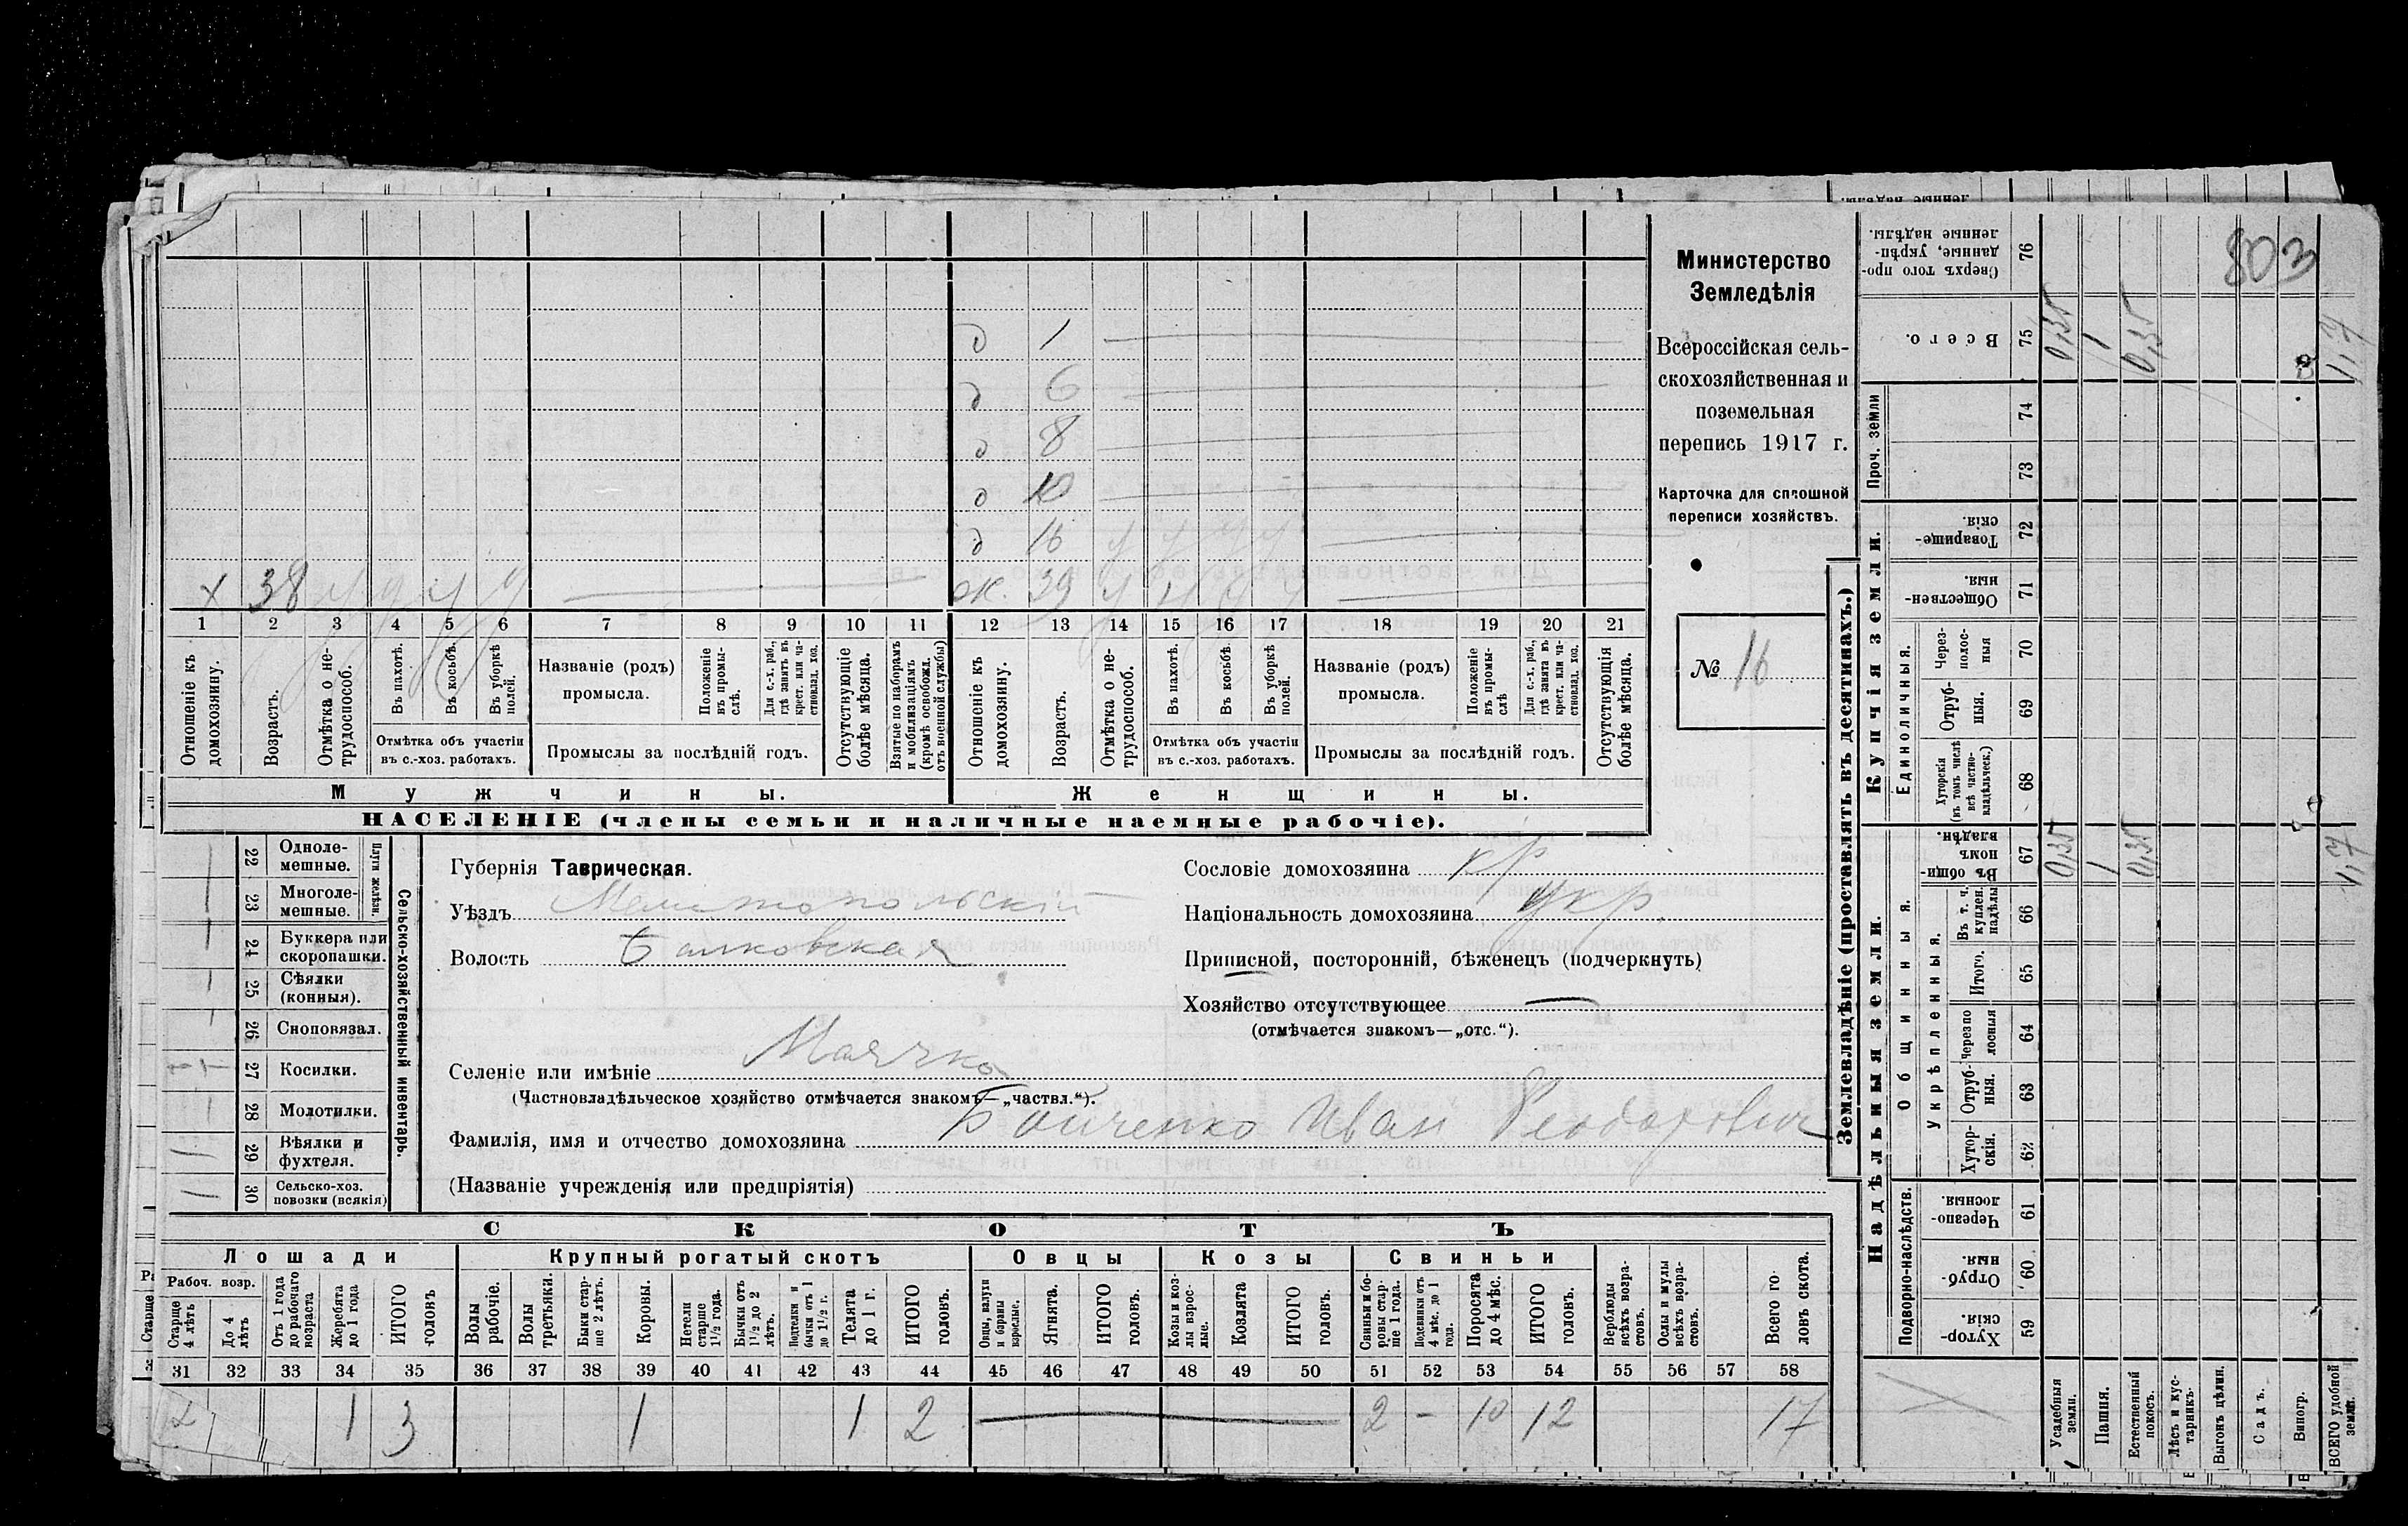 803
Министерство
Земледѣлія
Всероссійская сель-
скохозяйственная и
поземельная
перепись 1917 г.
Карточка для сплошной
переписи хозяйствъ.
№ 16
д 1
д 6
д 8
д 10
д 16
х 38
ж. 39
1 2 3 4 5 6 7 8 9 10 11 12 13 14 15 16 17 18 19 20 21
Отношеніе къ домохозяину.
Возрастъ.
Отмѣтка о не-трудоспособ.
Въ пахотѣ.
Въ косьбѣ.
Въ уборкѣ полей.
Отмѣтка объ участіи
въ с.-хоз. работахъ.
Названіе (родъ)
промысла.
Положеніе въ промы-слѣ.
Для с.-х. раб., гдѣ занятъ въ крест. или ча-стновлад. хоз.
Промыслы за послѣдній годъ.
Отсутствующіе болѣе мѣсяца.
Взятые по наборамъ и мобилизаціямъ (кромѣ освобожд. отъ военной службы)
Отношеніе къ домохозяину.
Возрастъ.
Отмѣтка о не-трудоспособ.
Въ пахотѣ.
Въ косьбѣ.
Въ уборкѣ полей.
Отмѣтка объ участіи
въ с.-хоз. работахъ.
Названіе (родъ)
промысла.
Положеніе въ промы-слѣ
Для с.-х. раб., гдѣ занята въ крест. или ча-стновлад. хоз.
Промыслы за послѣдній годъ.
Отсутствующія болѣе мѣсяца.
Мужчины.
Женщины.
НАСЕЛЕНІЕ (члены семьи и наличные наемные рабочіе).
Сельско-хозяйственный инвентарь.
Плуги желѣзн.
22 Однолемешные.
23 Многолемешные.
24 Буккера или скоропашки.
25 Сѣялки (конныя).
26 Сноповязал.
27 Косилки.
28 Молотилки.
29 Вѣялки и фухтеля.
30 Сельско-хоз. повозки (всякія)
Губернія Таврическая.
Уѣздъ Мелитопольскій
Волость Балковская
Селеніе или имѣніе Маячка
(Частновладѣльческое хозяйство отмѣчается знакомъ—„частвл.“).
Фамилія, имя и отчество домохозяина Бойченко Иван Феодорович
(Названіе учрежденія или предпріятія)
Сословіе домохозяина кр
Національность домохозяина укр.
Приписной, посторонній, бѣженецъ (подчеркнуть)
Хозяйство отсутствующее —
(отмѣчается знакомъ—„отс.“).
СКОТЪ
Лошади
Крупный рогатый скотъ
Овцы
Козы
Свиньи
Рабоч. возр.
Старше 4 лѣтъ
До 4 лѣтъ
Отъ 1 года до рабочаго возраста
Жеребята до 1 года
ИТОГО головъ
Волы рабочіе.
Волы третьяки.
Быки стар-ше 2 лѣтъ.
Коровы.
Нетели старше 1½ года.
Бычки отъ 1½ до 2 лѣтъ.
Подтелки и бычки отъ 1 до 1½ г.
Телята до 1 г.
ИТОГО головъ.
Овцы, валухи и бараны взрослые.
Ягнята.
ИТОГО головъ.
Козы и коз-лы взрос-лые.
Козлята
ИТОГО головъ.
Свиньи и бо-ровы стар-ше 1 года.
Подсвинки отъ 4 мѣс. до 1 года.
Поросята до 4 мѣс.
ИТОГО головъ.
Верблюды всѣхъ возра-стовъ.
Ослы и мулы всѣхъ возра-стовъ.
Всего го-ловъ скота.
31 32 33 34 35 36 37 38 39 40 41 42 43 44 45 46 47 48 49 50 51 52 53 54 55 56 57 58
2 1 3 1 1 2 — 2 - 10 12 17
Землевладѣніе (проставлять въ десятинахъ.)
Надѣльныя земли.
Купчія земли.
Проч. земли
Подворно-наслѣдств.
Общинныя.
Укрѣпленныя.
Единоличныя.
76 Сверхъ того про-данные, укрѣп-ленные надѣлы.
75 Всего. 0,35 1 0,35 1,7
74
73
72 Товарище-скія.
71 Обществен-ныя.
70 Через-полос-ныя
69 Отруб-ныя.
68 Хуторскія (въ томъ числѣ всѣ частно-владѣльческ.)
67 Въ общин-номъ владѣн. 0,35 1 0,35 1,7
66 Въ т. ч. куплен. надѣлы
65 Итого.
64 Черезпо-лосныя
63 Отруб-ныя.
62 Хутор-скія.
61 Черезпо-лосныя.
60 Отруб-ныя.
59 Хутор-скія.
Усадебныя земли.
Пашня.
Естественный покосъ.
Лѣсъ и кус-тарникъ.
Выгонъ цѣлин.
Садъ.
Виногр.
ВСЕГО удобной земли.